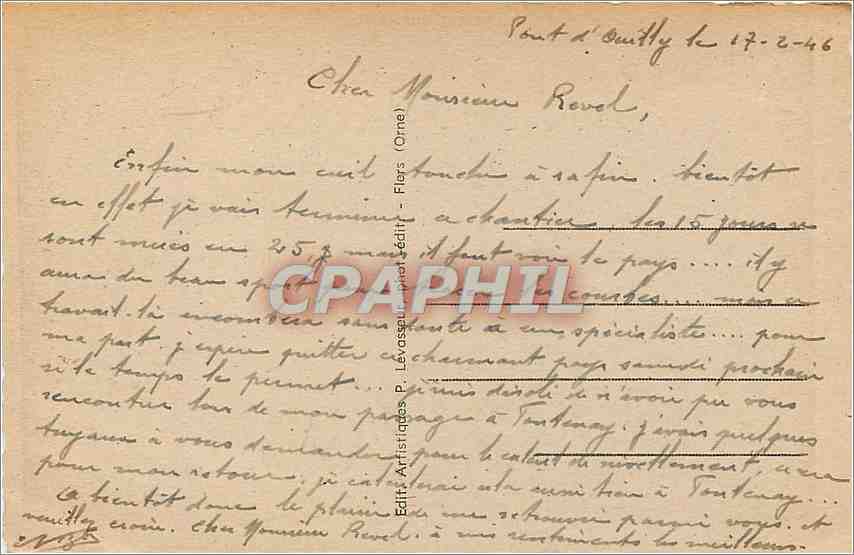 Pont d'Ouilly le 17-2-46
Cher Monsieur Revel,
Enfin mon exil touche à sa fin. bientôt
en effet je vais terminer ce chantier, les 15 jours se
sont mués en 25, mais il faut voir le pays .... il y
aura du beau sport les courbes .... mais ce
travail là incombera sans doute à un spécialiste .... pour
ma part j'espère quitter ce charmant pays samedi prochain
si le temps le permet ... je suis désolé de n'avoir pu vous
rencontrer lors de mon passage à Fontenay. j'avais quelques
tuyaux à vous demander pour le calcul de nivellement, ce sera
pour mon retour, je calculerai cela aussi bien à Fontenay ...
A bientôt donc le plaisir de me retrouver parmi vous. et
veuillez croire, Cher Monsieur Revel, à mes sentiments les meilleurs.
Edit. Artistiques P. Levasseur, photo-édit. - Flers (Orne)
CPAPHIL